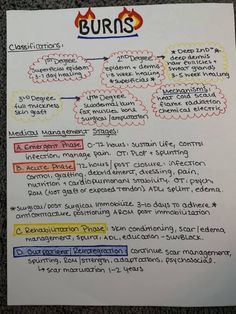 BURNS
Classifications:
1st Degree
Superficial epiderm
1-7 day healing
2nd Degree
epiderm + dermis
1-3 week healing
* superficial *
* Deep 2nD *
deep dermis
hair follicles +
sweat glands
3-5 week healing
3rd Degree
full thickness
skin graft
4th Degree
fat, muscle, bone
surgical/amputation
Mechanisms:
heat cold scald
flame radiation
chemical electric
Medical Management Stages:
A. Emergent Phase 0-72 hours : sustain life, control
infection, manage pain OT: PLOF + splinting
B. Acute Phase 72 hours / closure : infection
control, grafting, debridement, dressing, pain,
nutrition + cardiopulmonary stability. OT: psych,
ROM (not graft or exposed tendon) ADL, splint, edema.
* surgical / post surgical immobilize 3-10 days to adhere *
anticontracture positioning AROM post immobilization
C. Rehabilitation Phase : skin conditioning, scar/edema
management, splint, ADL, education - sunblock.
D. Outpatient / Reintegration : continue scar management,
splinting, ROM/strength, adaptations, psychosocial
↳ scar maturation 1-2 years